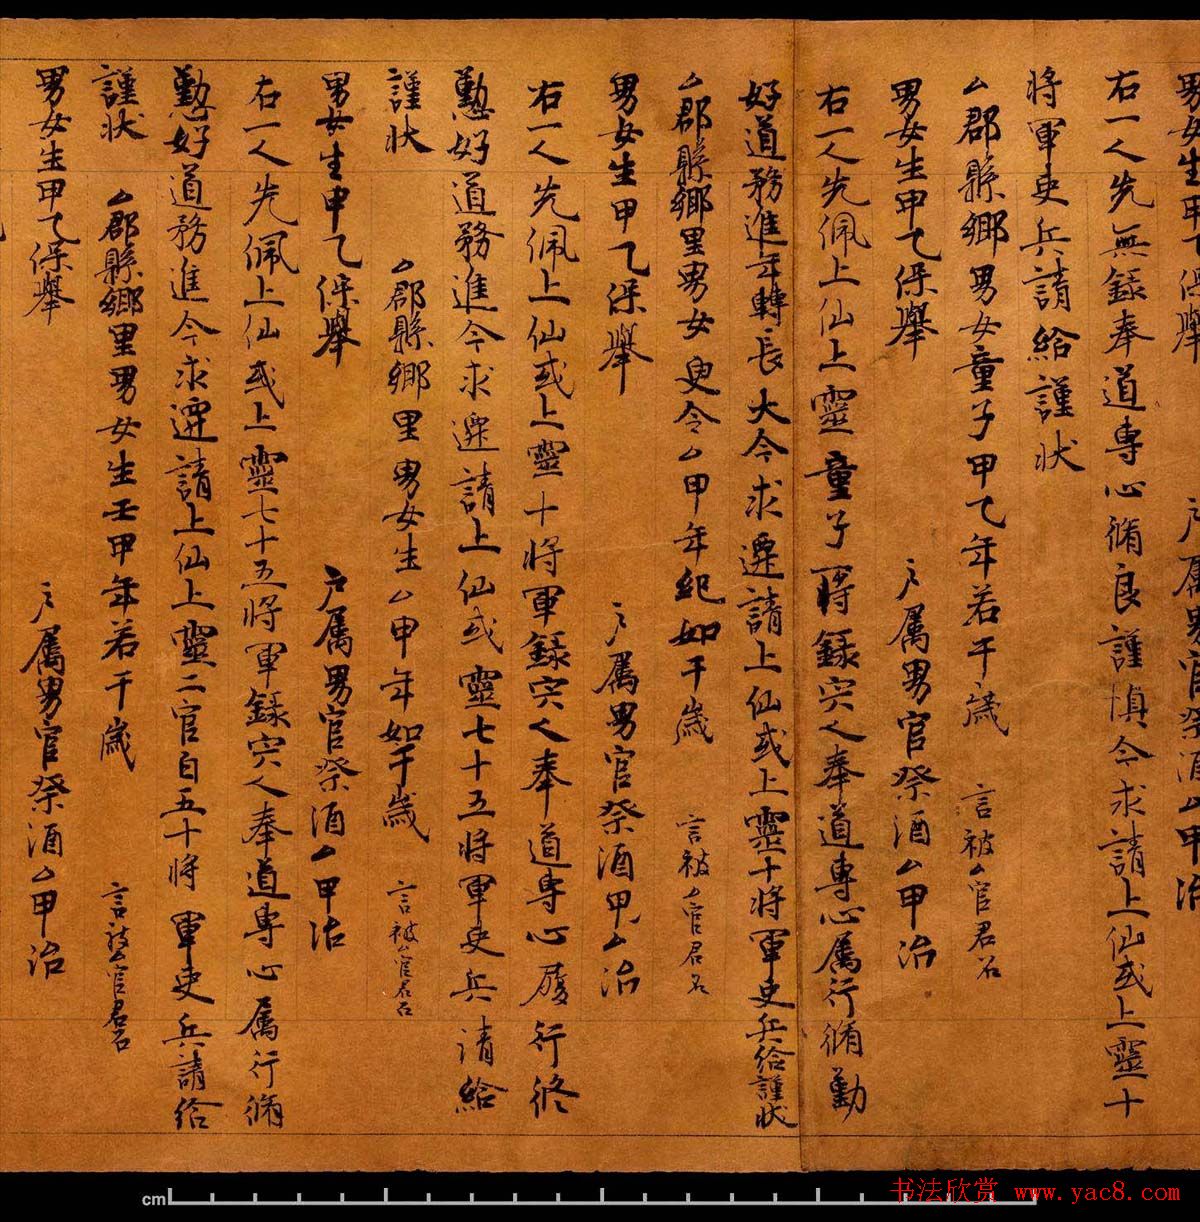 男女生甲乙保舉 戶屬男官祭酒厶甲治
右一人先無籙奉道專心脩良謹慎今求請上仙或上靈十
將軍吏兵請給謹狀
厶郡縣鄉男女童子甲乙年若干歲 言被厶官君召
男女生甲乙保舉 戶屬男官祭酒厶甲治
右一人先佩上仙上靈童子一將籙宍人奉道專心厲行脩勤
好道務進年轉長大今求遷請上仙或上靈十將軍吏兵給謹狀
厶郡縣鄉里男女叟令厶甲年紀如干歲 言被厶官君召
男女生甲乙保舉 戶屬男官祭酒甲厶治
右一人先佩上仙或上靈十將軍籙宍人奉道專心履行脩
懃好道務進今求遷請上仙或靈七十五將軍吏兵請給
謹狀 厶郡縣鄉里男女生厶甲年如干歲 言被厶官君召
男女生甲乙保舉 戶屬男官祭酒厶甲治
右一人先佩上仙或上靈七十五將軍籙宍人奉道專心厲行脩
懃好道務進今求遷請上仙上靈二官百五十將軍吏兵請給
謹狀 厶郡縣鄉里男女生王甲年若干歲 言被厶官君召
男女生甲乙保舉 戶屬男官祭酒厶甲治
cm
书法欣赏 www.yac8.com